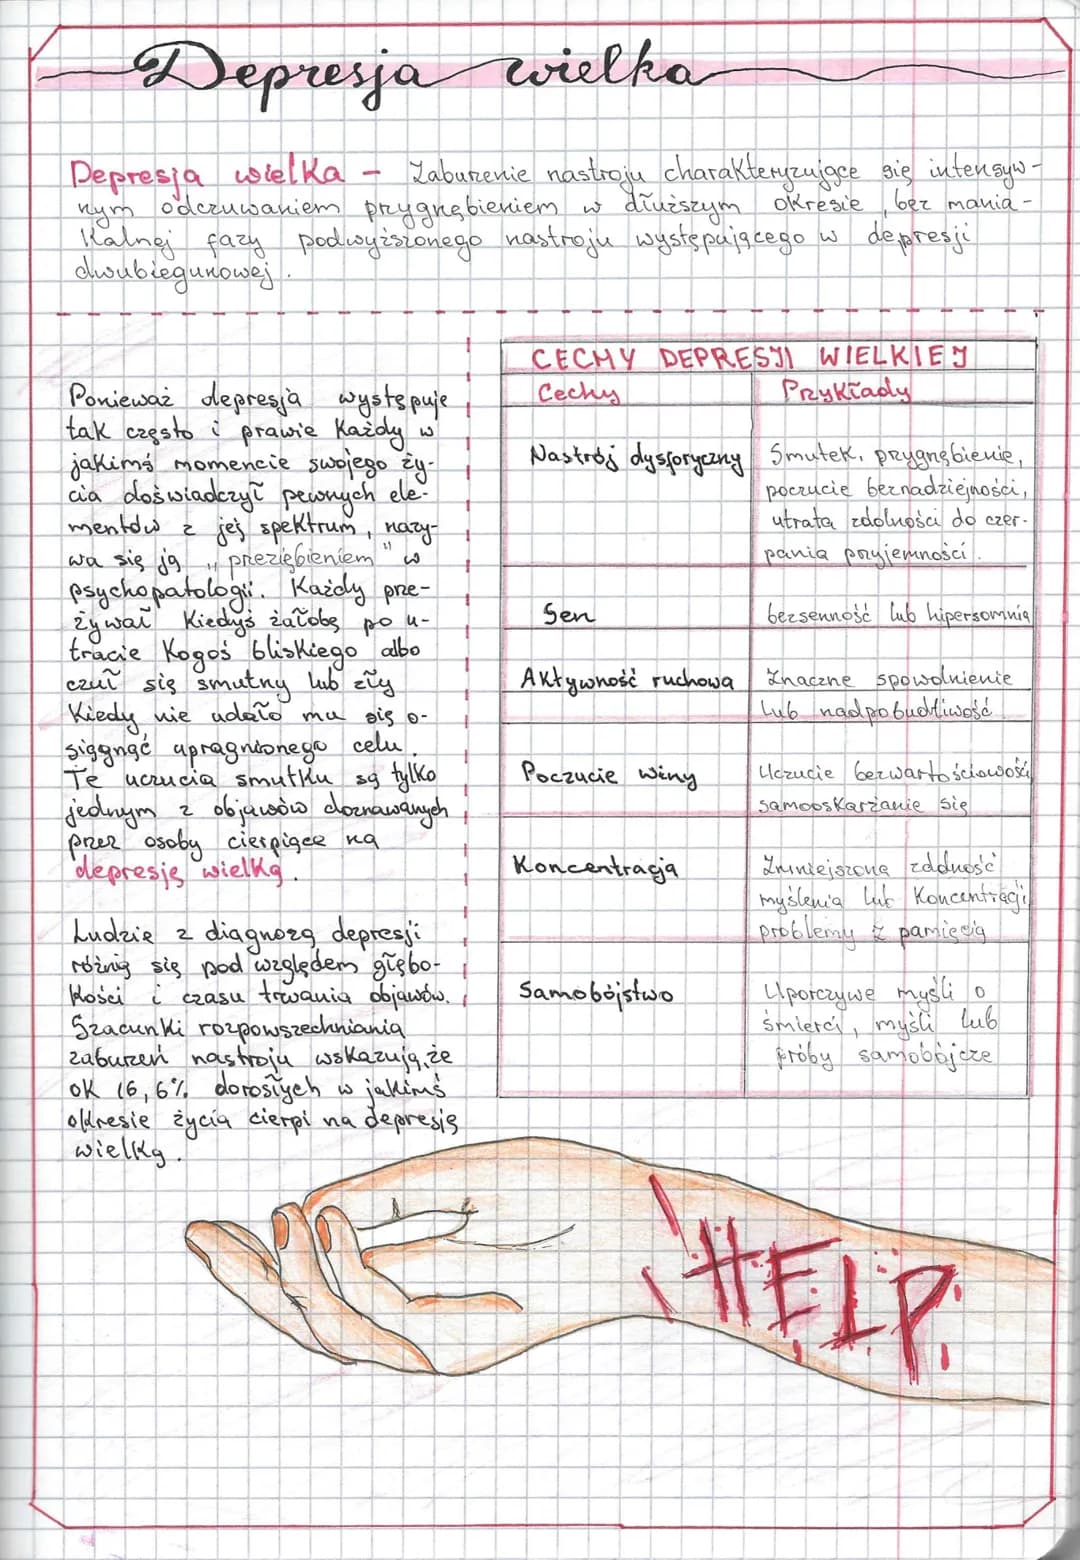 Depresja wielka
Depresja wielka - Zaburzenie nastroju charakteryzujące się intensyw-
nym odczuwaniem przygnębieniem w dłuższym okresie, bez mania-
kalnej fazy podwyższonego nastroju występującego w depresji
dwubiegunowej.
Ponieważ depresja występuje
tak często i prawie każdy w
jakimś momencie swojego ży-
cia doświadczył pewnych ele-
mentów z jej spektrum, nazy-
wa się ją „przeziębieniem" w
psychopatologii. Każdy prze-
żywał kiedyś żałobę po u-
tracie kogoś bliskiego albo
czuł się smutny lub zły
kiedy nie udało mu się o-
siągnąć upragnionego celu.
Te uczucia smutku są tylko
jednym z objawów doznawanych
przez osoby cierpiące na
depresję wielką.
Ludzie z diagnozą depresji
różnią się pod względem głębo-
kości i czasu trwania objawów.
Szacunki rozpowszechniania
zaburzeń nastroju wskazują, że
ok 16,6% dorosłych w jakimś
okresie życia cierpi na depresję
wielką.
CECHY DEPRESJI WIELKIEJ
Cechy Przykłady
Nastrój dysforyczny Smutek, przygnębienie,
poczucie beznadziejności,
utrata zdolności do czer-
pania przyjemności.
Sen bezsenność lub hipersomnia
Aktywność ruchowa Znaczne spowolnienie
lub nadpobudliwość
Poczucie winy Uczucie bezwartościowości
samooskarżanie się
Koncentracja Zmniejszona zdolność
myślenia lub koncentracji
problemy z pamięcią
Samobójstwo Uporczywe myśli o
śmierci, myśli lub
próby samobójcze
HELP